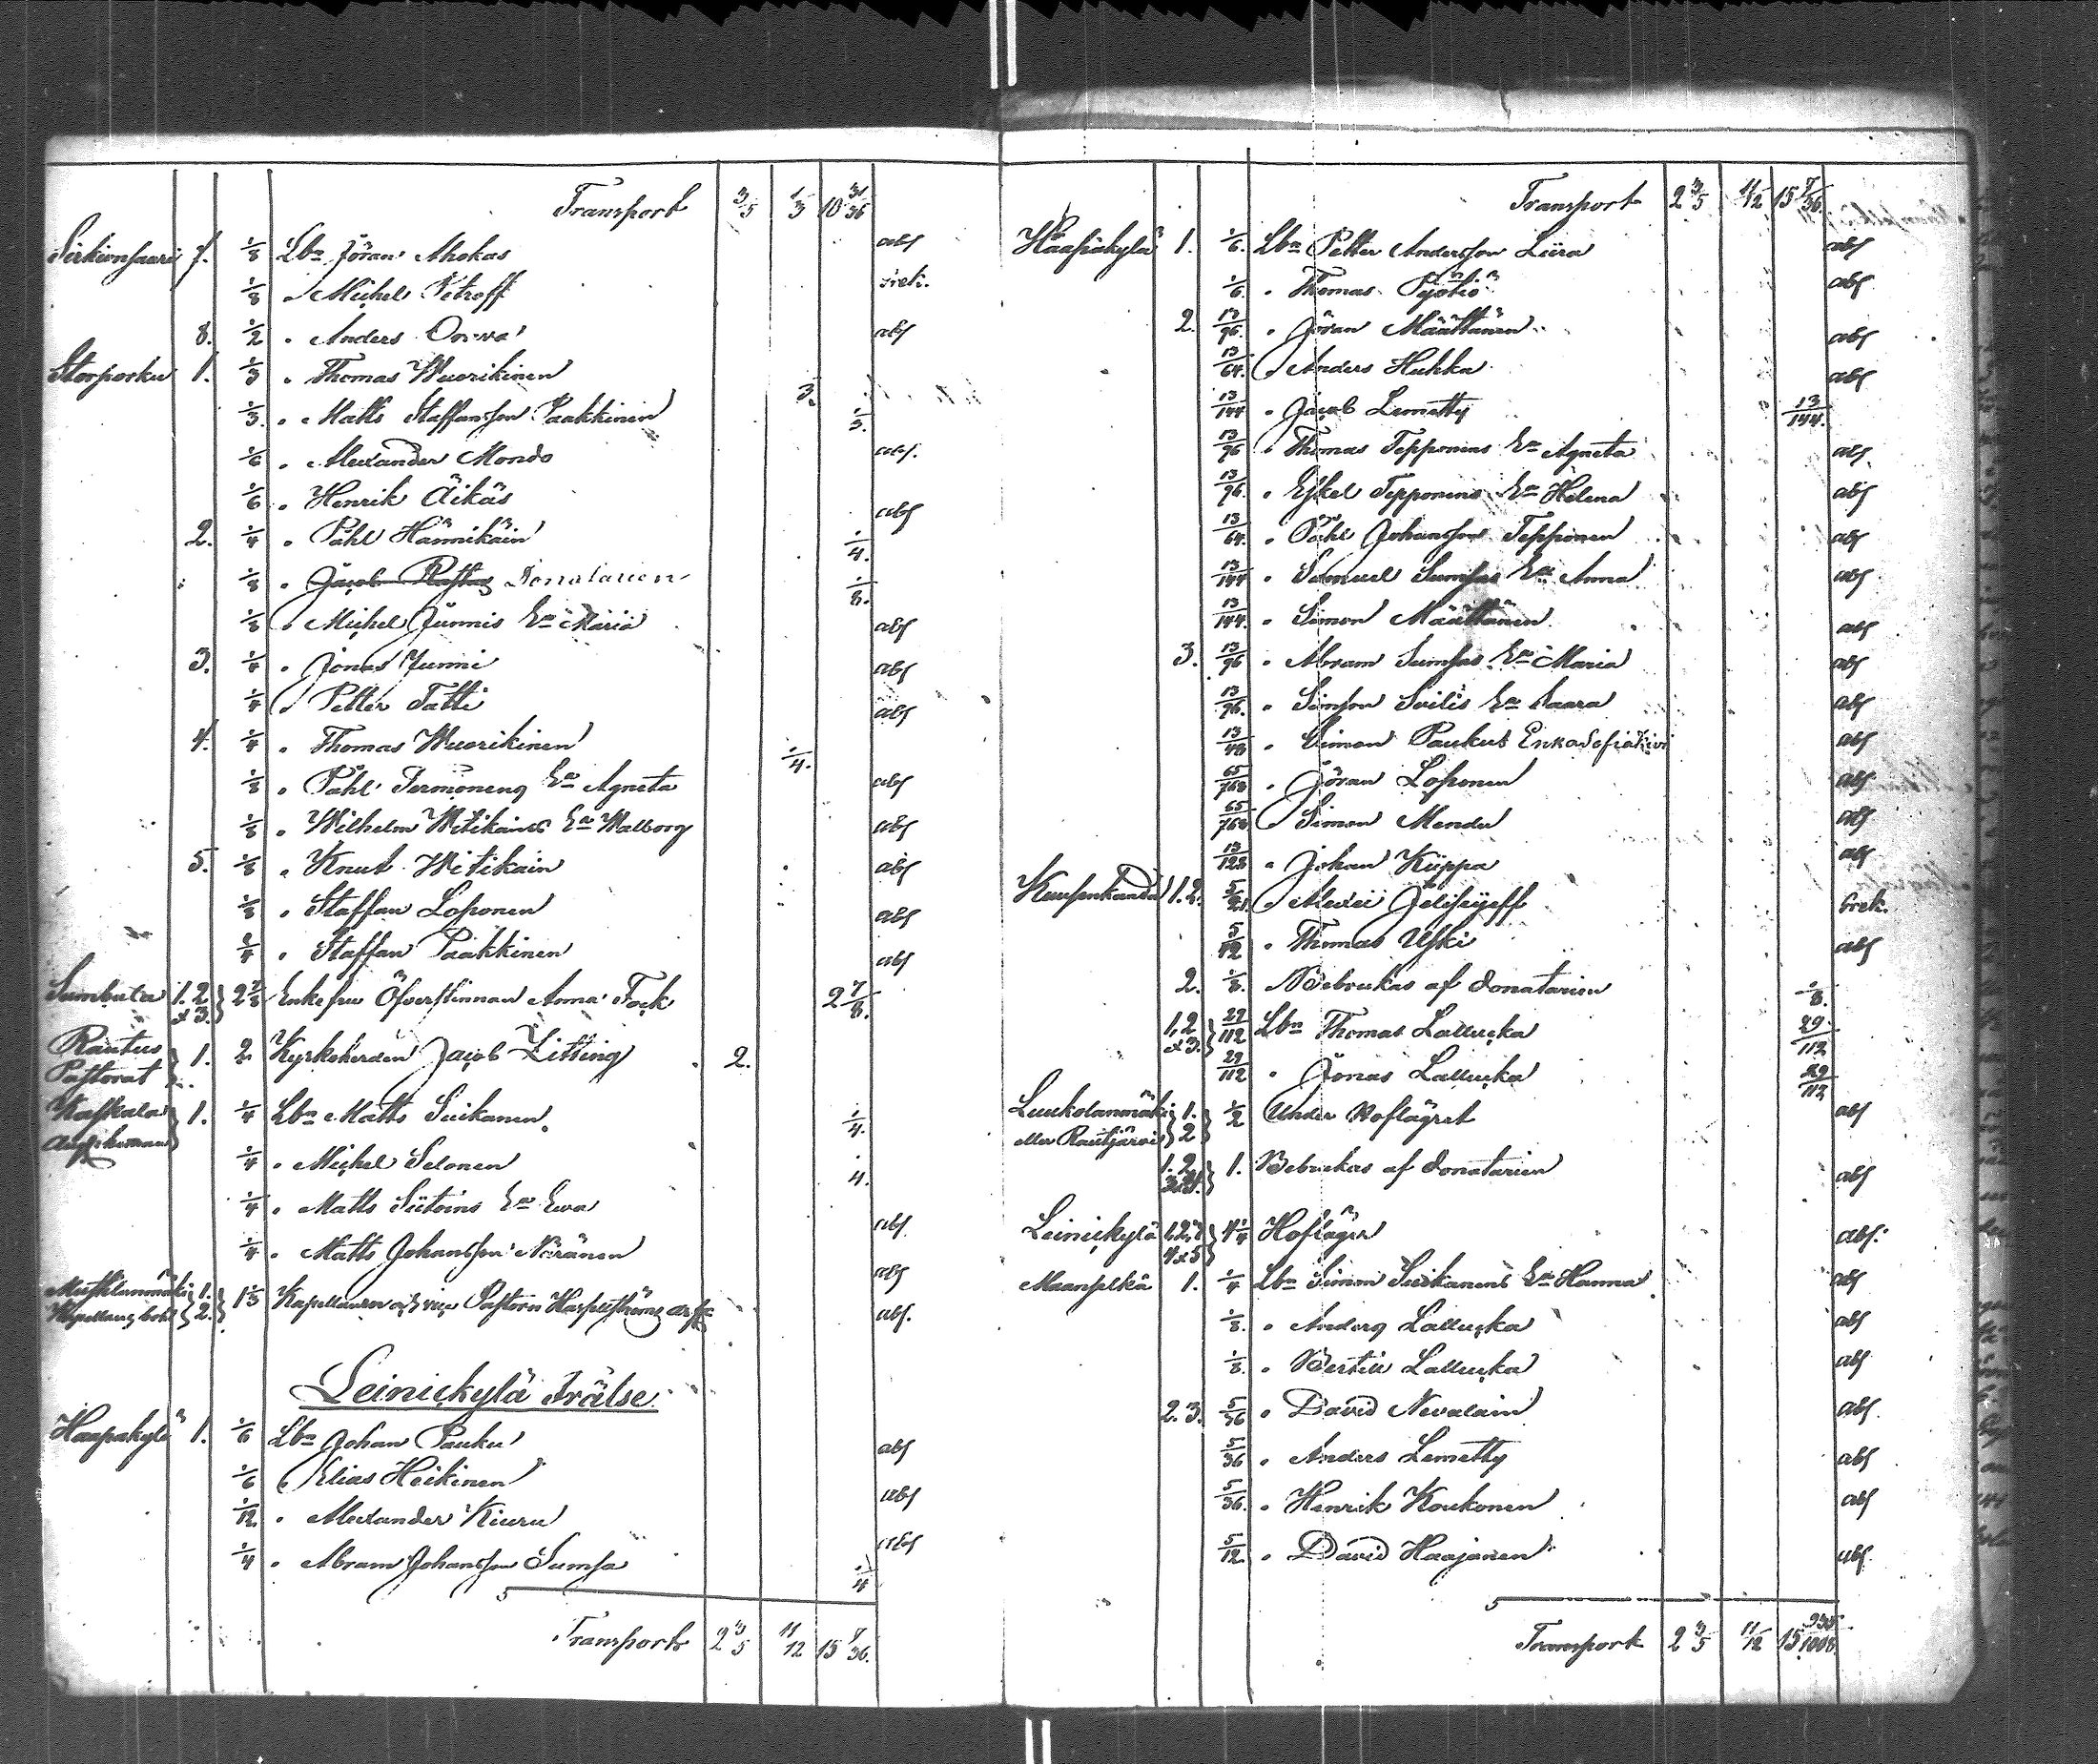 Transport 3/5 1/3 10 31/36
Sirkionsaari 7. 1/8 Lbn Jöran Ahokas abs
1/8 " Michel Petroff Grek.
8. 1/2 " Anders Orava abs
Storporku 1. 1/3 " Thomas Wuorikinen 1/3.
1/3. " Matts Staffansson Paakkinen 1/3.
1/6 " Alexander Mondo abs.
1/6 " Henrik Äikäs abs
2. 1/4 " Påhl Hännikäin 1/4.
1/8 " Jacob Donatarien 1/8.
1/8 " Michel Junnis En Maria abs
3. 1/4 " Jonas Junni abs
1/4 " Petter Tatti abs
4. 1/4 " Thomas Wuorikinen 1/4.
1/8 " Påhl Termonens En Agneta abs
1/8 " Wilhelm Witikains En Walborg abs
5. 1/8 " Knut Witikain abs
1/8 " Staffan Loponen abs
1/4 " Staffan Paakkinen abs
Sumbula 1. 2 & 3. 2 7/8 Enkefru Öfverstinnan Anna Fock 2 7/8.
Rautus Pastorat 1. 2 Kyrkoherden Jacob Zitting 2.
Kaskala 1. 1/4 Lbn Matts Suikanen 1/4.
1/4 " Michel Selonen 1/4.
1/4 " Matts Siitoins En Ewa abs.
1/4 " Matts Johansson Näränen abs
1. 2. 1 1/3 Kapellanen och vice Pastorn abs.
Leinickylä Frälse.
Haapakylä 1. 1/6 Lbn Johan Pauku abs
1/6 " Elias Heikinen abs
1/12 " Alexander Kiuru abs
1/4 " Abram Johansson Sumsa 1/4
Transport 2 3/5 11/12 15 7/36.
Transport 2 3/5 11/12 15 7/36.
Haapakylä 1. 1/6. Lbn Petter Andersson Liira abs
1/6. " Thomas Pyötiö abs
2. 13/96. " Jöran Määttänen abs
13/64. " Anders Huhka abs
13/144 " Jacob Lemetty 13/144.
13/96 " Thomas Tepponens En Agneta abs.
13/96. " Eskel Tepponens En Helena abs
13/64. " Påhl Johansson Tepponen abs
13/144 " Samuel Sumsas En Anna abs
13/144. " Simon Määttänen abs
3. 13/96 " Abram Sumsas En Maria abs
13/96. " Simon En Saara abs
13/48 " Simon Paukus Enka abs
65/768 " Jöran Loponen abs
65/768 " Simon Mendu abs
13/128 " Johan Kiippa abs
Kuusenkanda 1. 2. 5/21. " Alexei Jelisejeff Grek.
5/42 " Thomas Uski abs
2. 1/8. Bebrukas af donatarien 1/8.
1. 2 & 3. 29/112 Lbn Thomas Lallucka 29/112
29/112 " Jonas Lallucka 29/112
Luukolanmäki eller Rautjärvi 1. 2 1/2 Under Hoflägret abs
1. 2 1. Bebrukas af donatarien abs
Leinickylä 1. 2. 3 4 & 5 4 1/4 Hofläger abs.
Maanselkä 1. 1/4 Lbn Simon Suikanens En Hanna abs
1/8. " Anders Lallucka abs
1/8. " Bertill Lallucka abs
2. 3. 5/36 " David Nevalain abs.
5/36 " Anders Lemetty abs
5/36. " Henrik Koukonen abs
5/12. " David Haajanen abs.
Transport 2 3/5 11/12 15 935/1008.